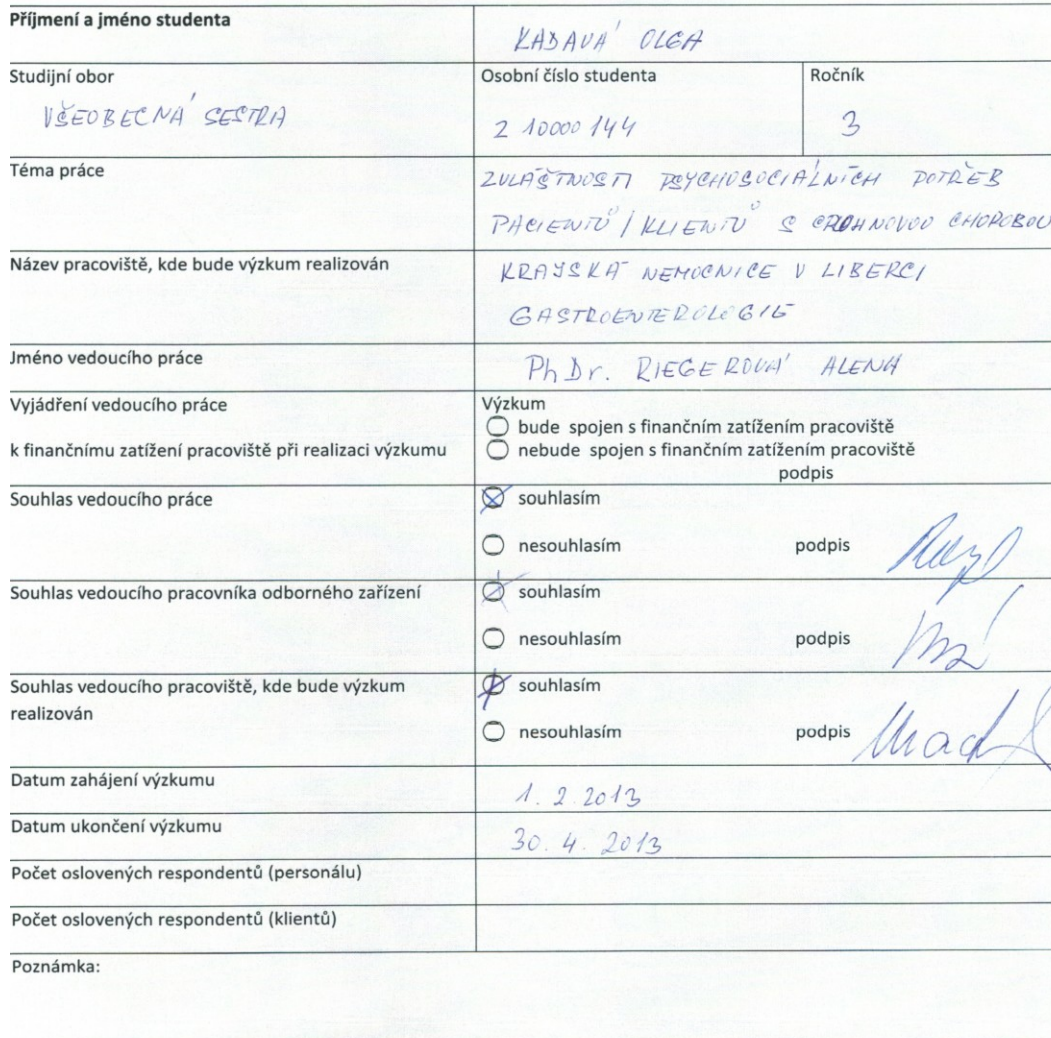 Příjmení a jméno studenta
KADAVÁ OLGA
Studijní obor
VŠEOBECNÁ SESTRA
Osobní číslo studenta
2 10000 144
Ročník
3
Téma práce
ZVLÁŠTNOSTI PSYCHOSOCIÁLNÍCH POTŘEB
PACIENTŮ / KLIENTŮ S CROHNOVOU CHOROBOU
Název pracoviště, kde bude výzkum realizován
KRAJSKÁ NEMOCNICE V LIBERCI
GASTROENTEROLOGIE
Jméno vedoucího práce
PhDr. RIEGEROVÁ ALENA
Vyjádření vedoucího práce
k finančnímu zatížení pracoviště při realizaci výzkumu
Výzkum
bude spojen s finančním zatížením pracoviště
nebude spojen s finančním zatížením pracoviště
podpis
Souhlas vedoucího práce
souhlasím
nesouhlasím podpis
Souhlas vedoucího pracovníka odborného zařízení
souhlasím
nesouhlasím podpis
Souhlas vedoucího pracoviště, kde bude výzkum
realizován
souhlasím
nesouhlasím podpis
Datum zahájení výzkumu
1. 2. 2013
Datum ukončení výzkumu
30. 4. 2013
Počet oslovených respondentů (personálu)
Počet oslovených respondentů (klientů)
Poznámka: